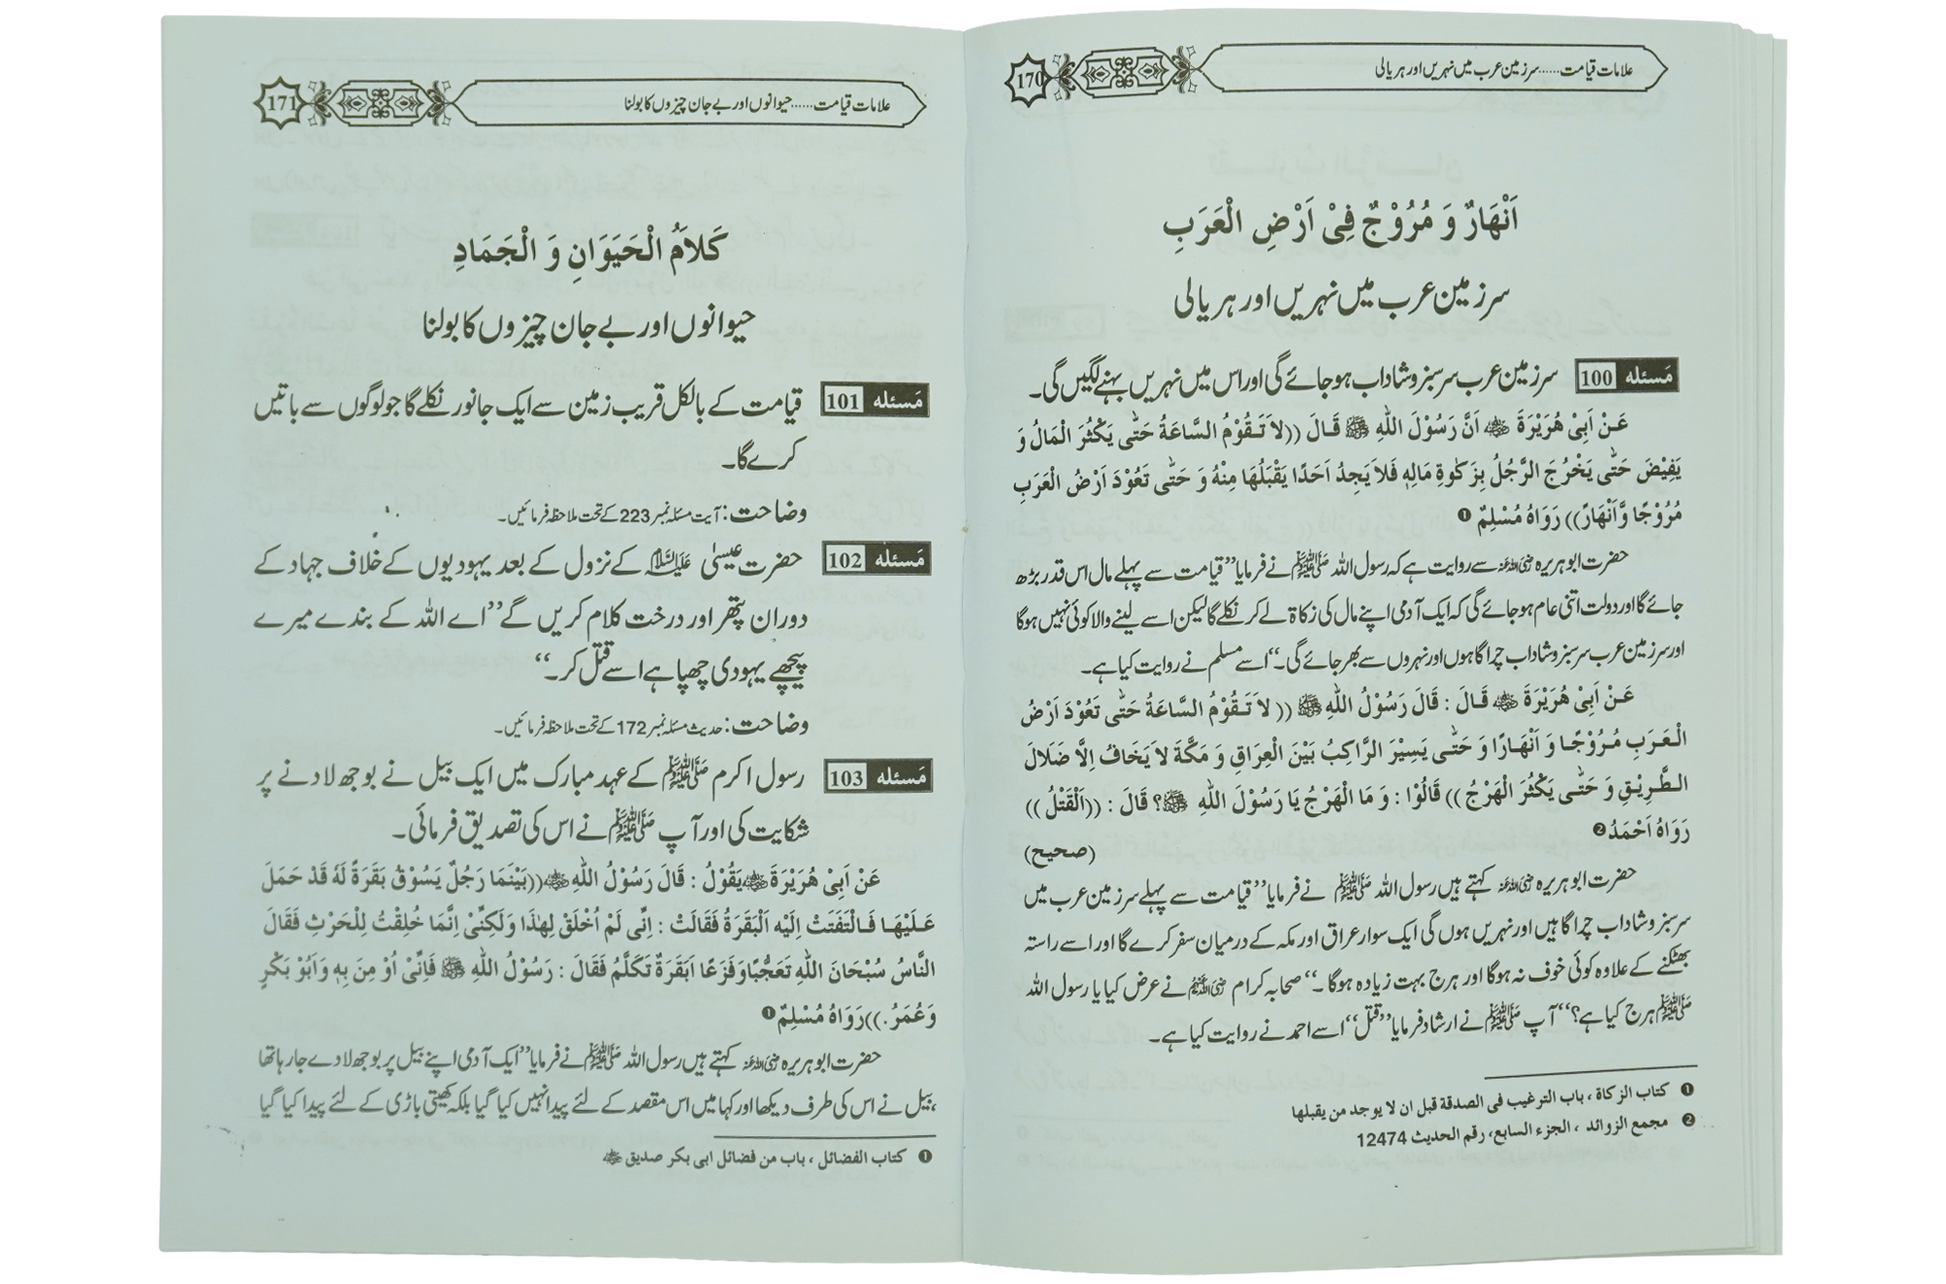 170
علامات قیامت......سرزمین عرب میں نہریں اور ہریالی
اَنْهَارٌ وَ مُرُوْجٌ فِیْ اَرْضِ الْعَرَبِ
سرزمین عرب میں نہریں اور ہریالی
مَسئله 100 سرزمین عرب سرسبز و شاداب ہو جائے گی اور اس میں نہریں بہنے لگیں گی۔
عَنْ اَبِیْ هُرَیْرَةَ ؓ اَنَّ رَسُوْلَ اللّٰهِ ﷺ قَالَ ((لاَ تَقُوْمُ السَّاعَةُ حَتّٰی یَکْثُرَ الْمَالُ وَ
یَفِیْضَ حَتّٰی یَخْرُجَ الرَّجُلُ بِزَکٰوةِ مَالِهٖ فَلاَ یَجِدُ اَحَدًا یَقْبَلُهَا مِنْهُ وَ حَتّٰی تَعُوْدَ اَرْضُ الْعَرَبِ
مُرُوْجًا وَّاَنْهَارً)) رَوَاهُ مُسْلِمٌ ❶
حضرت ابوہریرہ رضی اللہ عنہ سے روایت ہے کہ رسول اللہ ﷺ نے فرمایا ’’قیامت سے پہلے مال اس قدر بڑھ
جائے گا اور دولت اتنی عام ہو جائے گی کہ ایک آدمی اپنے مال کی زکاۃ لے کر نکلے گا لیکن اسے لینے والا کوئی نہیں ہوگا
اور سرزمین عرب سرسبز و شاداب چراگاہوں اور نہروں سے بھر جائے گی۔‘‘ اسے مسلم نے روایت کیا ہے۔
عَنْ اَبِیْ هُرَیْرَةَ ؓ قَالَ : قَالَ رَسُوْلُ اللّٰهِ ﷺ (( لاَ تَقُوْمُ السَّاعَةُ حَتّٰی تَعُوْدَ اَرْضُ
الْعَرَبِ مُرُوْجًا وَ اَنْهَارًا وَ حَتّٰی یَسِیْرَ الرَّاکِبُ بَیْنَ الْعِرَاقِ وَ مَکَّةَ لاَ یَخَافُ اِلاَّ ضَلَالَ
الطَّرِیْقِ وَ حَتّٰی یَکْثُرَ الْهَرْجُ )) قَالُوْا : وَ مَا الْهَرْجُ یَا رَسُوْلَ اللّٰهِ ﷺ؟ قَالَ : ((اَلْقَتْلُ ))
رَوَاهُ اَحْمَدُ ❷
(صحیح)
حضرت ابوہریرہ رضی اللہ عنہ کہتے ہیں رسول اللہ ﷺ نے فرمایا ’’قیامت سے پہلے سرزمین عرب میں
سرسبز و شاداب چراگاہیں اور نہریں ہوں گی ایک سوار عراق اور مکہ کے درمیان سفر کرے گا اور اسے راستہ
بھٹکنے کے علاوہ کوئی خوف نہ ہوگا اور ہرج بہت زیادہ ہوگا ۔‘‘ صحابہ کرام رضی اللہ عنہم نے عرض کیا یا رسول اللہ
ﷺ ہرج کیا ہے؟‘‘ آپ ﷺ نے ارشاد فرمایا ’’قتل‘‘ اسے احمد نے روایت کیا ہے۔
❶ کتاب الزکاة ، باب الترغیب فی الصدقة قبل ان لا یوجد من یقبلها
❷ مجمع الزوائد ، الجزء السابع، رقم الحدیث 12474
171
علامات قیامت......حیوانوں اور بے جان چیزوں کا بولنا
کَلاَمُ الْحَیَوَانِ وَ الْجَمَادِ
حیوانوں اور بے جان چیزوں کا بولنا
مَسئله 101 قیامت کے بالکل قریب زمین سے ایک جانور نکلے گا جو لوگوں سے باتیں
کرے گا۔
وضاحت : آیت مسئلہ نمبر 223 کے تحت ملاحظہ فرمائیں۔
مَسئله 102 حضرت عیسیٰ علیہ السلام کے نزول کے بعد یہودیوں کے خلاف جہاد کے
دوران پتھر اور درخت کلام کریں گے ’’اے اللہ کے بندے میرے
پیچھے یہودی چھپا ہے اسے قتل کر۔‘‘
وضاحت : حدیث مسئلہ نمبر 172 کے تحت ملاحظہ فرمائیں۔
مَسئله 103 رسول اکرم ﷺ کے عہد مبارک میں ایک بیل نے بوجھ لادنے پر
شکایت کی اور آپ ﷺ نے اس کی تصدیق فرمائی۔
عَنْ اَبِیْ هُرَیْرَةَ ؓ یَقُوْلُ : قَالَ رَسُوْلُ اللّٰهِ ﷺ ((بَیْنَمَا رَجُلٌ یَسُوْقُ بَقَرَةً لَهُ قَدْ حَمَلَ
عَلَیْهَا فَالْتَفَتَتْ اِلَیْهِ الْبَقَرَةُ فَقَالَتْ : اِنِّی لَمْ اُخْلَقْ لِهٰذَا وَلٰکِنِّیْ اِنَّمَا خُلِقْتُ لِلْحَرْثِ فَقَالَ
النَّاسُ سُبْحَانَ اللّٰهِ تَعَجُّبًا وَفَزَعًا اَبَقَرَةٌ تَکَلَّمُ فَقَالَ : رَسُوْلُ اللّٰهِ ﷺ فَاِنِّیْ اُوْمِنَ بِهٖ وَاَبُوْ بَکْرٍ
وَعُمَرُ.)) رَوَاهُ مُسْلِمٌ ❶
حضرت ابوہریرہ رضی اللہ عنہ کہتے ہیں رسول اللہ ﷺ نے فرمایا ’’ایک آدمی اپنے بیل پر بوجھ لادے جا رہا تھا
، بیل نے اس کی طرف دیکھا اور کہا میں اس مقصد کے لئے پیدا نہیں کیا گیا بلکہ کھیتی باڑی کے لئے پیدا کیا گیا
❶ کتاب الفضائل ، باب من فضائل ابی بکر صدیق ؓ